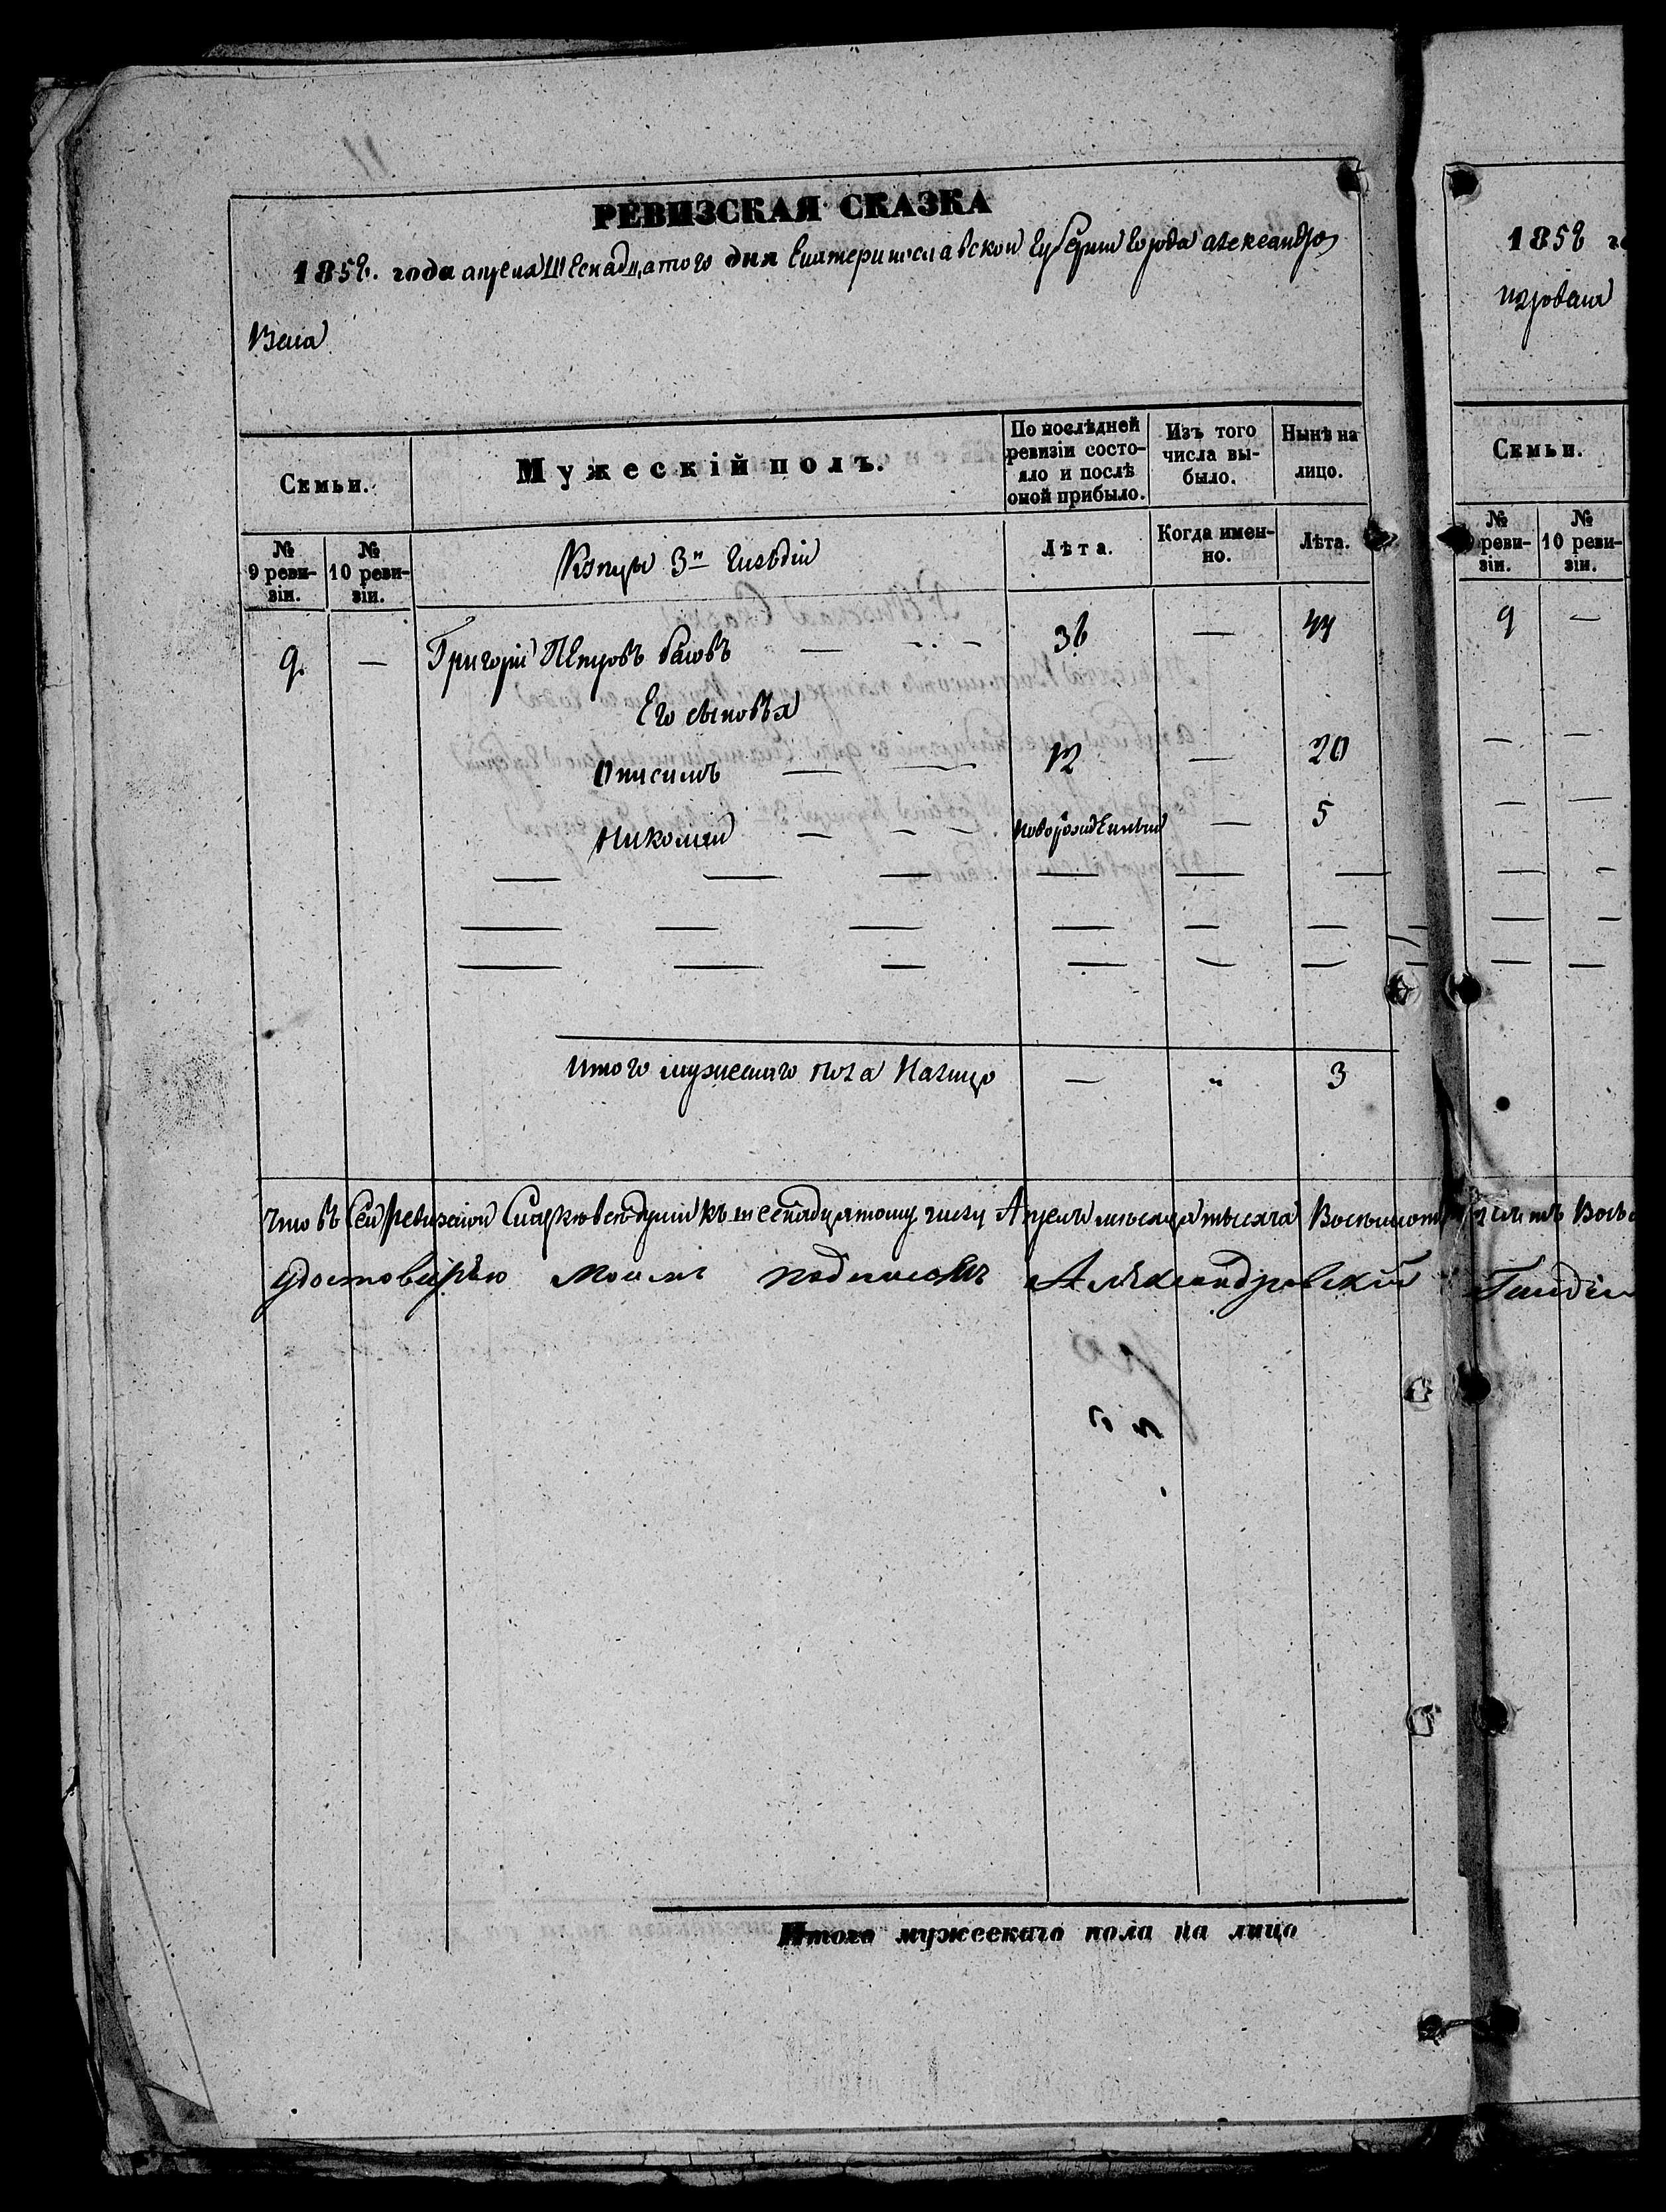 РЕВИЗСКАЯ СКАЗКА
1858. года апреля Шеснадцатого дня Екатеринославской Губернии Города александро
вска
Семьи.
Мужескій полъ.
По послѣдней ревизіи состояло и послѣ оной прибыло.
Изъ того числа выбыло.
Нынѣ на лицо.
№ 9 ревизіи.
№ 10 ревизіи.
Купцы 3й Гильдіи
Лѣта.
Когда именно.
Лѣта.
9. — Григорій Петровъ — — 36 — 44
Его сыновья
Онисимъ — — 12 — 20
Николай — — — новорожденный — 5
Итого мужескаго пола Налицо — „ 3
что въ сей ревизской къ шеснадцатому числу Апреля месяца тысяча Восемьсот
удостоверяю моимъ подписомъ Александровскій
Итого мужескаго пола на лицо
1858
Семьи.
№ 9 ревизіи.
№ 10 ревизіи.
9 —